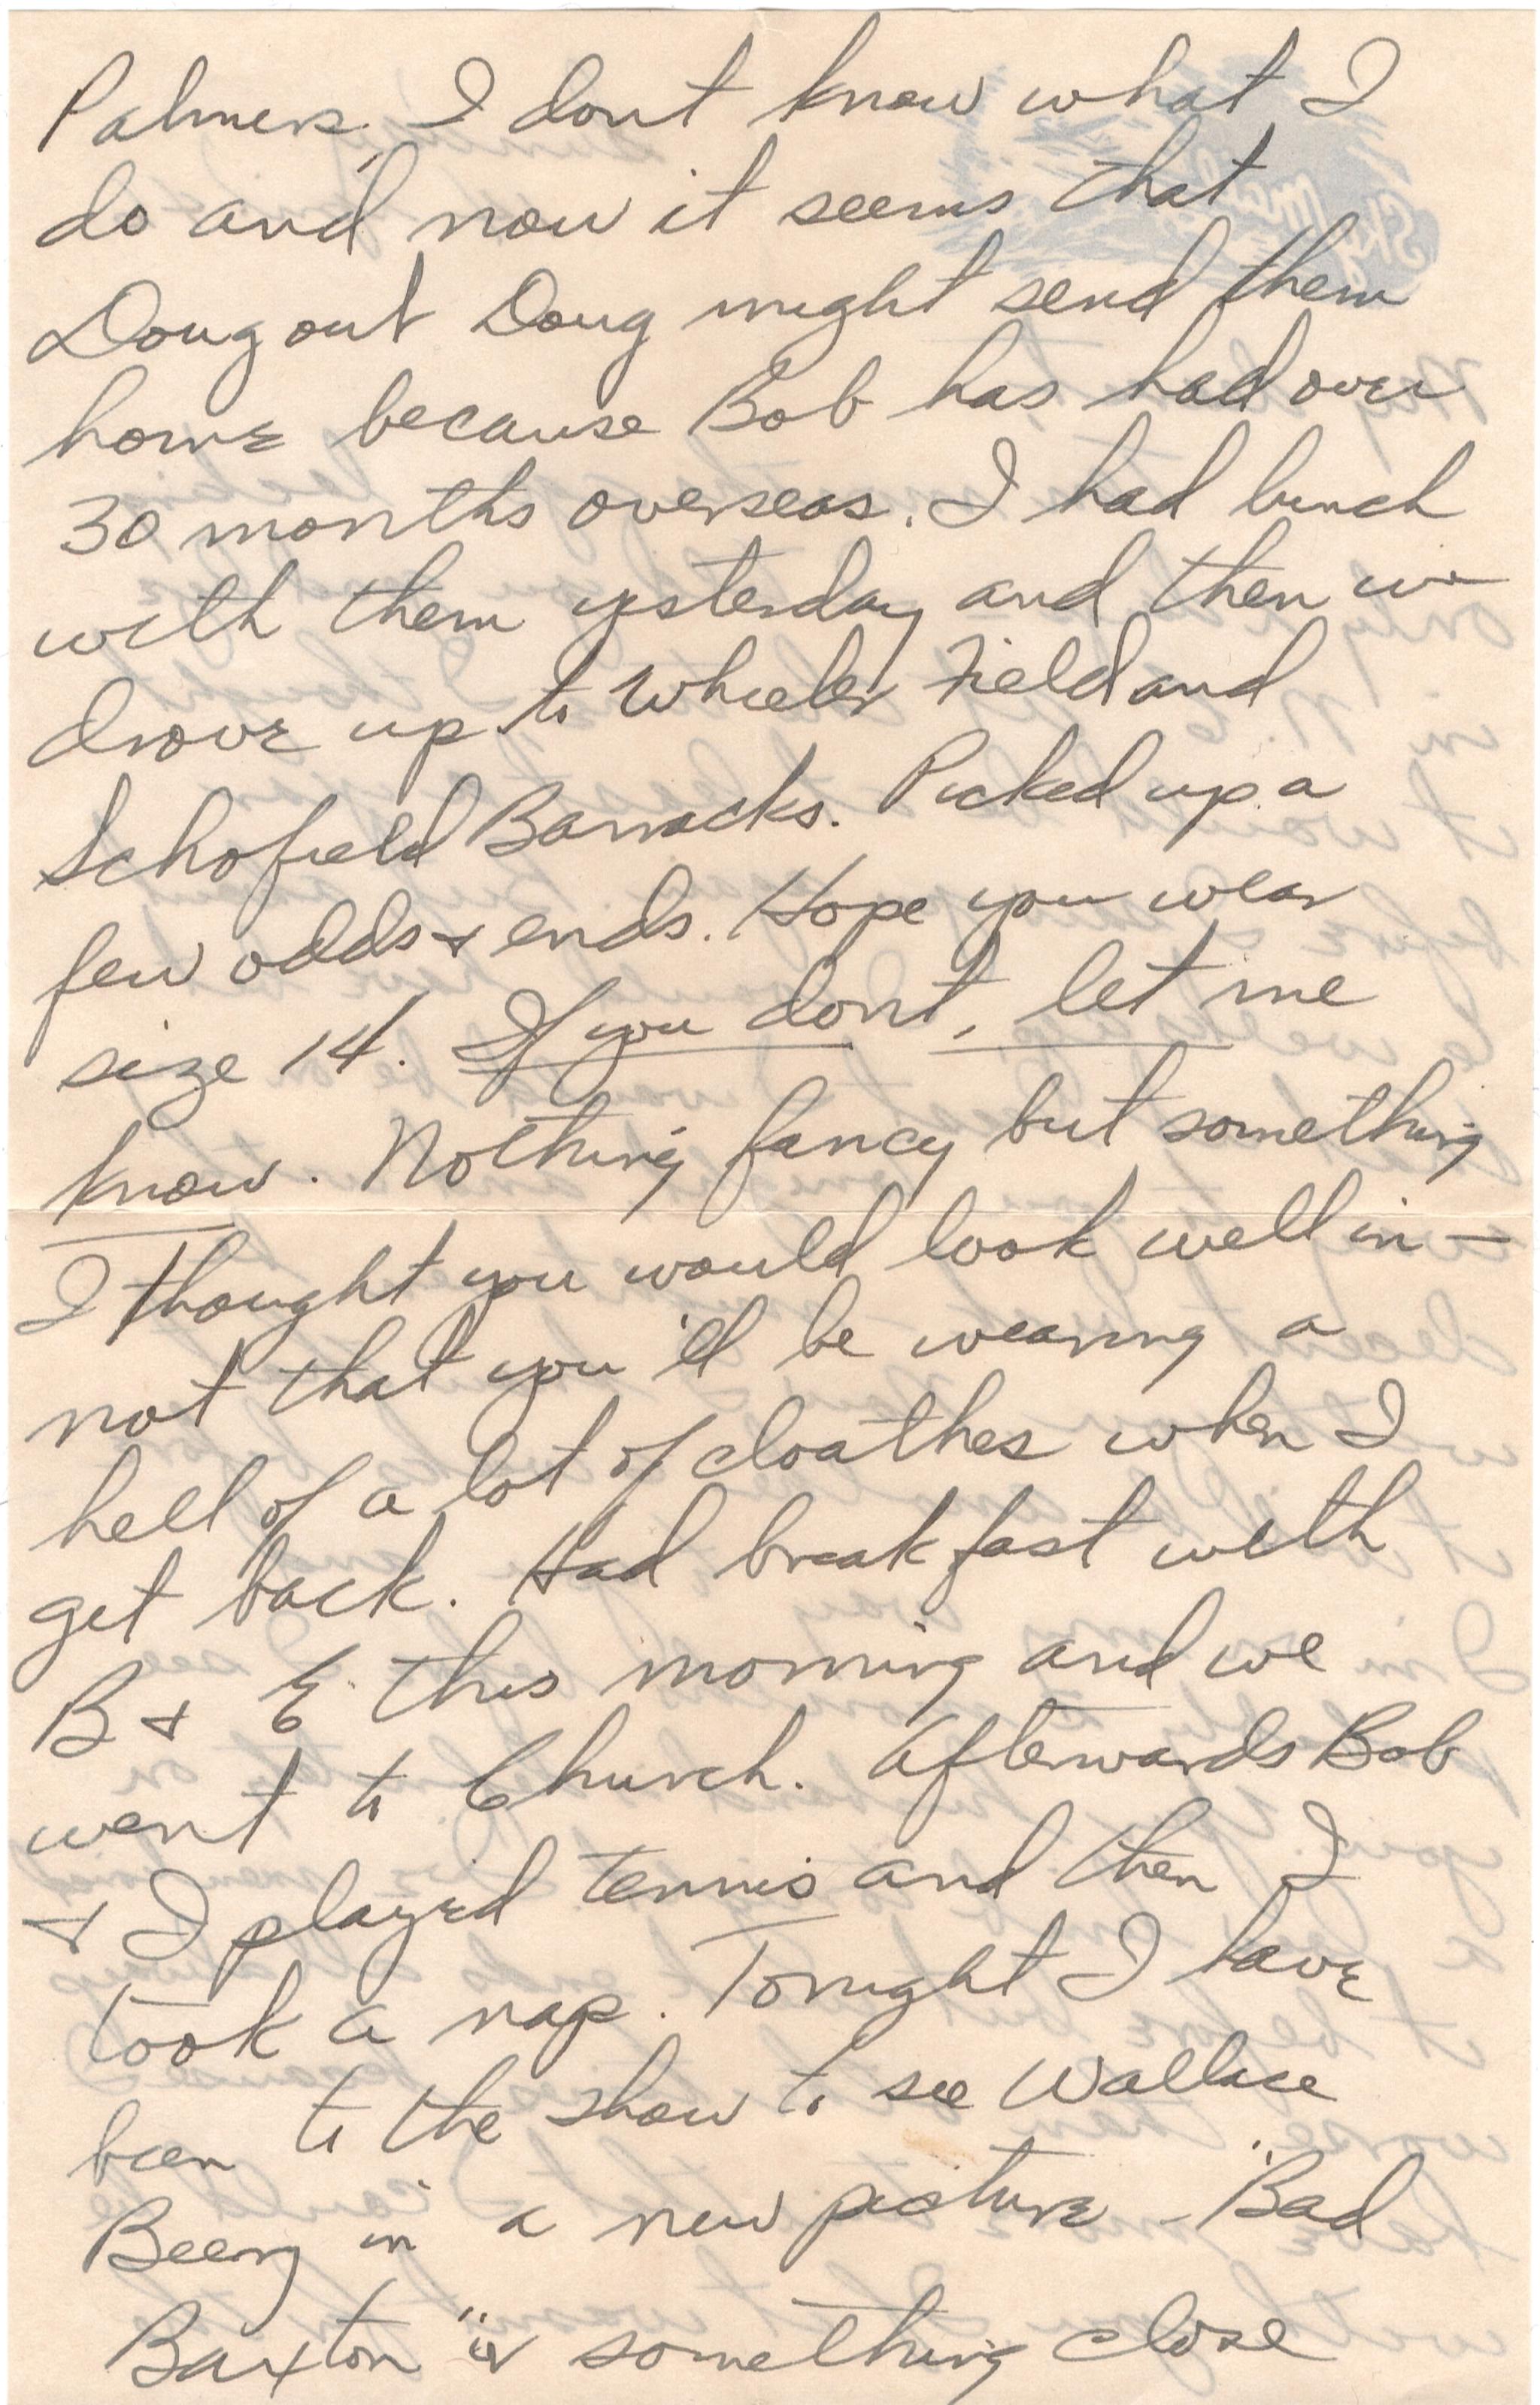 Palmers, I dont know what I
do and now it seems that
Dougout Doug might send them
home because Bob has had over
30 months overseas. I had lunch
with them yesterday and then we
drove up to Wheeler Field and
Schofield Barracks. Picked up a
few odds & ends. Hope you wear
size 14. If you dont, let me
know. Nothing fancy but something
I thought you would look well in —
not that you'll be wearing a
hell of a lot of cloathes when I
get back. Had breakfast with
B & E this morning and we
went to Church. Afterwards Bob
& I played tennis and then I
took a nap. Tonight I have
been to the show to see Wallace
Beery in a new picture - "Bad
Baxton" or something close